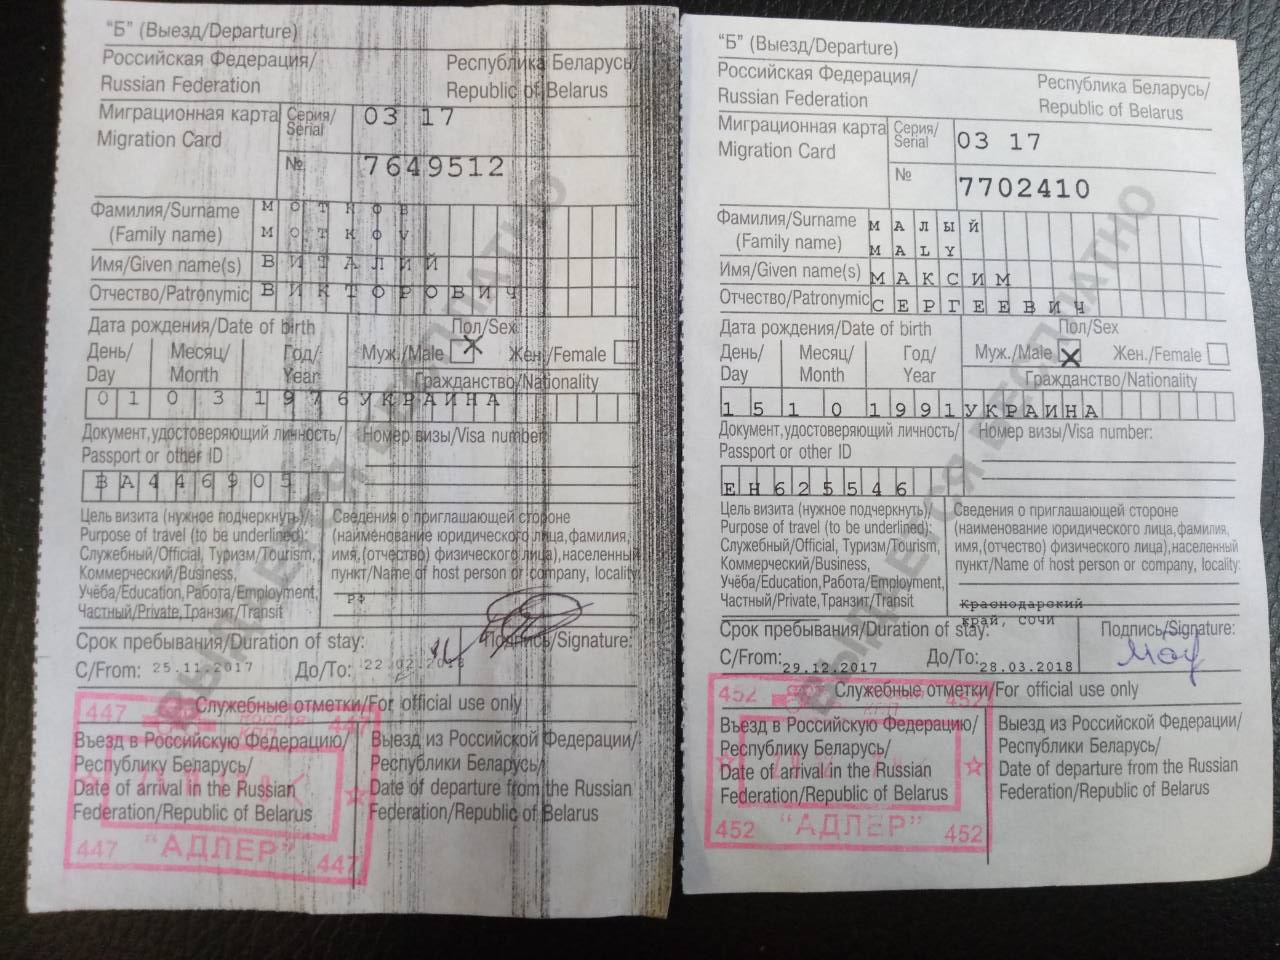 "Б" (Выезд/Departure)
Российская Федерация/ Республика Беларусь/
Russian Federation Republic of Belarus
Миграционная карта Серия/ 03 17
Migration Card Serial
№ 7649512
Фамилия/Surname МОТКОВ
(Family name) МОТКОV
Имя/Given name(s) ВИТАЛИЙ
Отчество/Patronymic ВИКТОРОВИЧ
Дата рождения/Date of birth Пол/Sex
День/ Месяц/ Год/ Муж./Male X Жен./Female
Day Month Year Гражданство/Nationality
01031976 УКРАИНА
Документ,удостоверяющий личность/ Номер визы/Visa number:
Passport or other ID
ВА446905
Цель визита (нужное подчеркнуть)/ Сведения о приглашающей стороне
Purpose of travel (to be underlined): (наименование юридического лица,фамилия,
Служебный/Official, Туризм/Tourism, имя,(отчество) физического лица),населенный
Коммерческий/Business, пункт/Name of host person or company, locality:
Учёба/Education,Работа/Employment,
Частный/Private,Транзит/Transit РФ
Срок пребывания/Duration of stay: Подпись/Signature:
С/From: 25.11.2017 До/To: 22.02.2018
Служебные отметки/For official use only
Въезд в Российскую Федерацию/ Выезд из Российской Федерации/
Республику Беларусь/ Республики Беларусь/
Date of arrival in the Russian Date of departure from the Russian
Federation/Republic of Belarus Federation/Republic of Belarus
447 РОССИЯ 447
КПП
447 "АДЛЕР" 447
"Б" (Выезд/Departure)
Российская Федерация/ Республика Беларусь/
Russian Federation Republic of Belarus
Миграционная карта Серия/ 03 17
Migration Card Serial
№ 7702410
Фамилия/Surname МАЛЫЙ
(Family name) MALY
Имя/Given name(s) МАКСИМ
Отчество/Patronymic СЕРГЕЕВИЧ
Дата рождения/Date of birth Пол/Sex
День/ Месяц/ Год/ Муж./Male X Жен./Female
Day Month Year Гражданство/Nationality
15101991 УКРАИНА
Документ,удостоверяющий личность/ Номер визы/Visa number:
Passport or other ID
ЕН625546
Цель визита (нужное подчеркнуть)/ Сведения о приглашающей стороне
Purpose of travel (to be underlined): (наименование юридического лица,фамилия,
Служебный/Official, Туризм/Tourism, имя,(отчество) физического лица),населенный
Коммерческий/Business, пункт/Name of host person or company, locality:
Учёба/Education,Работа/Employment,
Частный/Private,Транзит/Transit Краснодарский
край, СОЧИ
Срок пребывания/Duration of stay: Подпись/Signature:
С/From: 29.12.2017 До/To: 28.03.2018
Служебные отметки/For official use only
Въезд в Российскую Федерацию/ Выезд из Российской Федерации/
Республику Беларусь/ Республики Беларусь/
Date of arrival in the Russian Date of departure from the Russian
Federation/Republic of Belarus Federation/Republic of Belarus
452 КПП 452
452 "АДЛЕР" 452
ВЫДАЕТСЯ БЕСПЛАТНО
ВЫДАЕТСЯ БЕСПЛАТНО